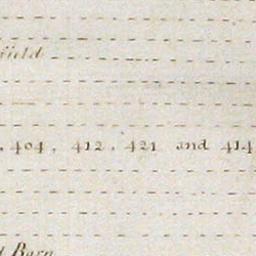 field
, 404, 412, 421 and 414
Barn